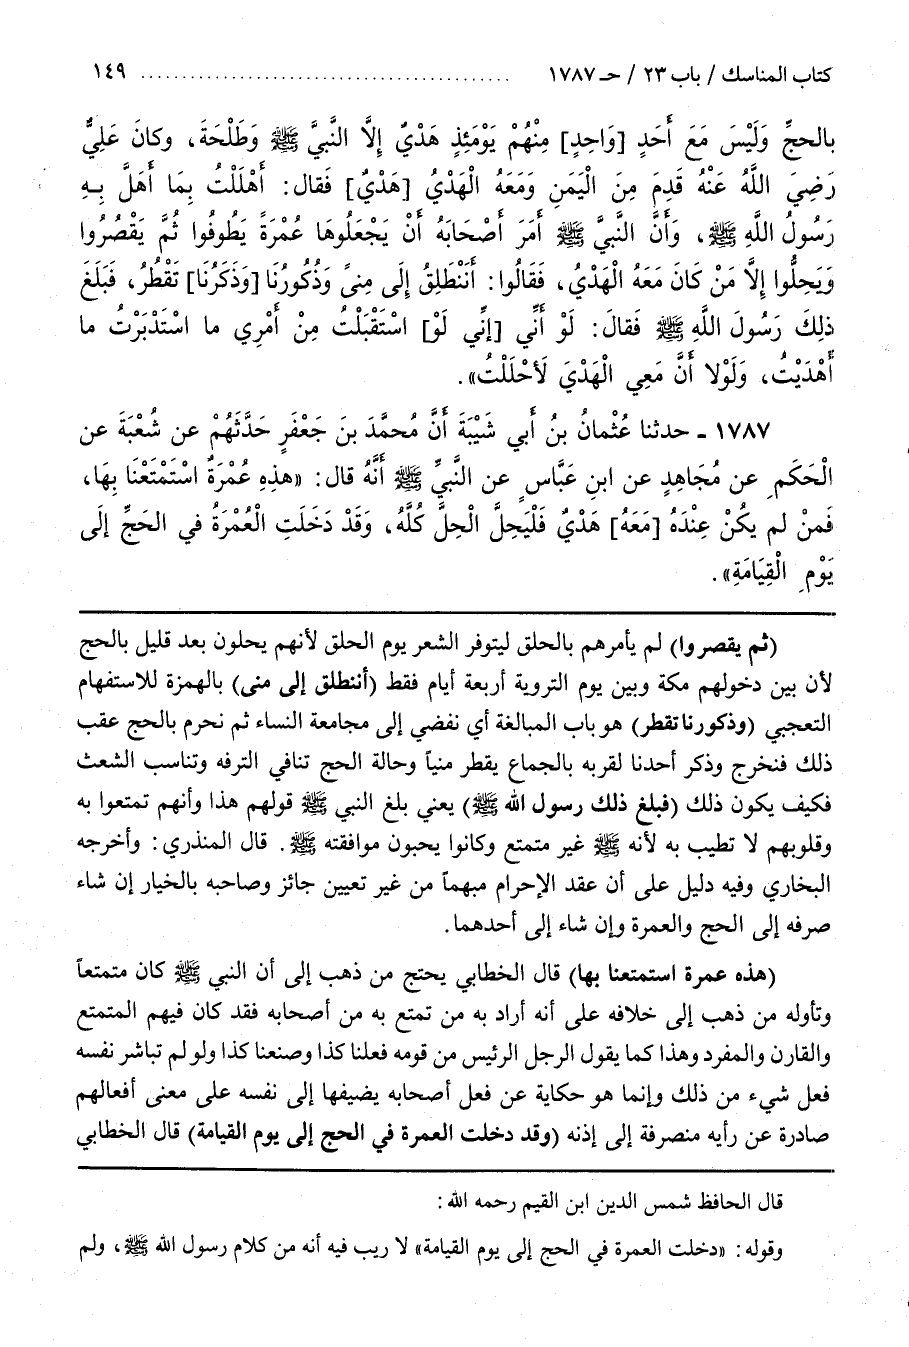 كتاب المناسك / باب ٢٣ / حـ ١٧٨٧ ............................................ ١٤٩
بالحجِّ وَلَيْسَ مَعَ أَحَدٍ [وَاحِدٍ] مِنْهُمْ يَوْمَئِذٍ هَدْيٌ إِلَّا النَّبيَّ ﷺ وَطَلْحَةَ، وكانَ عَلِيٌّ
رَضِيَ اللَّهُ عَنْهُ قَدِمَ مِنَ الْيَمَنِ وَمَعَهُ الْهَدْيُ [هَدْيٌ] فَقال: أَهْلَلْتُ بِمَا أَهَلَّ بِهِ
رَسُولُ اللَّهِ ﷺ، وَأَنَّ النَّبيَّ ﷺ أَمَرَ أَصْحَابَهُ أَنْ يَجْعَلُوهَا عُمْرَةً يَطُوفُوا ثُمَّ يَقْصُرُوا
وَيَحِلُّوا إِلَّا مَنْ كَانَ مَعَهُ الْهَدْيُ، فَقَالُوا: أَنَنْطَلِقُ إِلَى مِنىً وَذُكُورُنَا [وَذَكَرُنَا] تَقْطُرُ، فَبَلَغَ
ذلِكَ رَسُولَ اللَّهِ ﷺ فَقالَ: لَوْ أَنِّي [إنِّي لَوْ] اسْتَقْبَلْتُ مِنْ أَمْرِي ما اسْتَدْبَرْتُ ما
أَهْدَيْتُ، وَلَوْلا أَنَّ مَعِي الْهَدْيَ لَأَحْلَلْتُ».
١٧٨٧ ـ حدثنا عُثْمانُ بنُ أَبي شَيْبَةَ أَنَّ مُحمَّدَ بنَ جَعْفَرٍ حَدَّثَهُمْ عن شُعْبَةَ عن
الْحَكَمِ عن مُجَاهِدٍ عن ابنِ عَبَّاسٍ عن النَّبيِّ ﷺ أَنَّهُ قال: «هذِهِ عُمْرَةٌ اسْتَمْتَعْنَا بِهَا،
فَمنْ لم يكُنْ عِنْدَهُ [مَعَهُ] هَدْيٌ فَلْيَحِلَّ الْحِلَّ كُلَّهُ، وَقَدْ دَخَلَتِ الْعُمْرَةُ في الحَجِّ إلَى
يَوْمِ الْقِيَامَةِ».
(ثم يقصروا) لم يأمرهم بالحلق ليتوفر الشعر يوم الحلق لأنهم يحلون بعد قليل بالحج
لأن بين دخولهم مكة وبين يوم التروية أربعة أيام فقط (أننطلق إلى منى) بالهمزة للاستفهام
التعجبي (وذكورنا تقطر) هو باب المبالغة أي نفضي إلى مجامعة النساء ثم نحرم بالحج عقب
ذلك فنخرج وذكر أحدنا لقربه بالجماع يقطر منياً وحالة الحج تنافي الترفه وتناسب الشعث
فكيف يكون ذلك (فبلغ ذلك رسول الله ﷺ) يعني بلغ النبي ﷺ قولهم هذا وأنهم تمتعوا به
وقلوبهم لا تطيب به لأنه ﷺ غير متمتع وكانوا يحبون موافقته ﷺ. قال المنذري: وأخرجه
البخاري وفيه دليل على أن عقد الإحرام مبهماً من غير تعيين جائز وصاحبه بالخيار إن شاء
صرفه إلى الحج والعمرة وإن شاء إلى أحدهما.
(هذه عمرة استمتعنا بها) قال الخطابي يحتج من ذهب إلى أن النبي ﷺ كان متمتعاً
وتأوله من ذهب إلى خلافه على أنه أراد به من تمتع به من أصحابه فقد كان فيهم المتمتع
والقارن والمفرد وهذا كما يقول الرجل الرئيس من قومه فعلنا كذا وصنعنا كذا ولو لم تباشر نفسه
فعل شيء من ذلك وإنما هو حكاية عن فعل أصحابه يضيفها إلى نفسه على معنى أفعالهم
صادرة عن رأيه منصرفة إلى إذنه (وقد دخلت العمرة في الحج إلى يوم القيامة) قال الخطابي
قال الحافظ شمس الدين ابن القيم رحمه الله:
وقوله: «دخلت العمرة في الحج إلى يوم القيامة» لا ريب فيه أنه من كلام رسول الله ﷺ، ولم